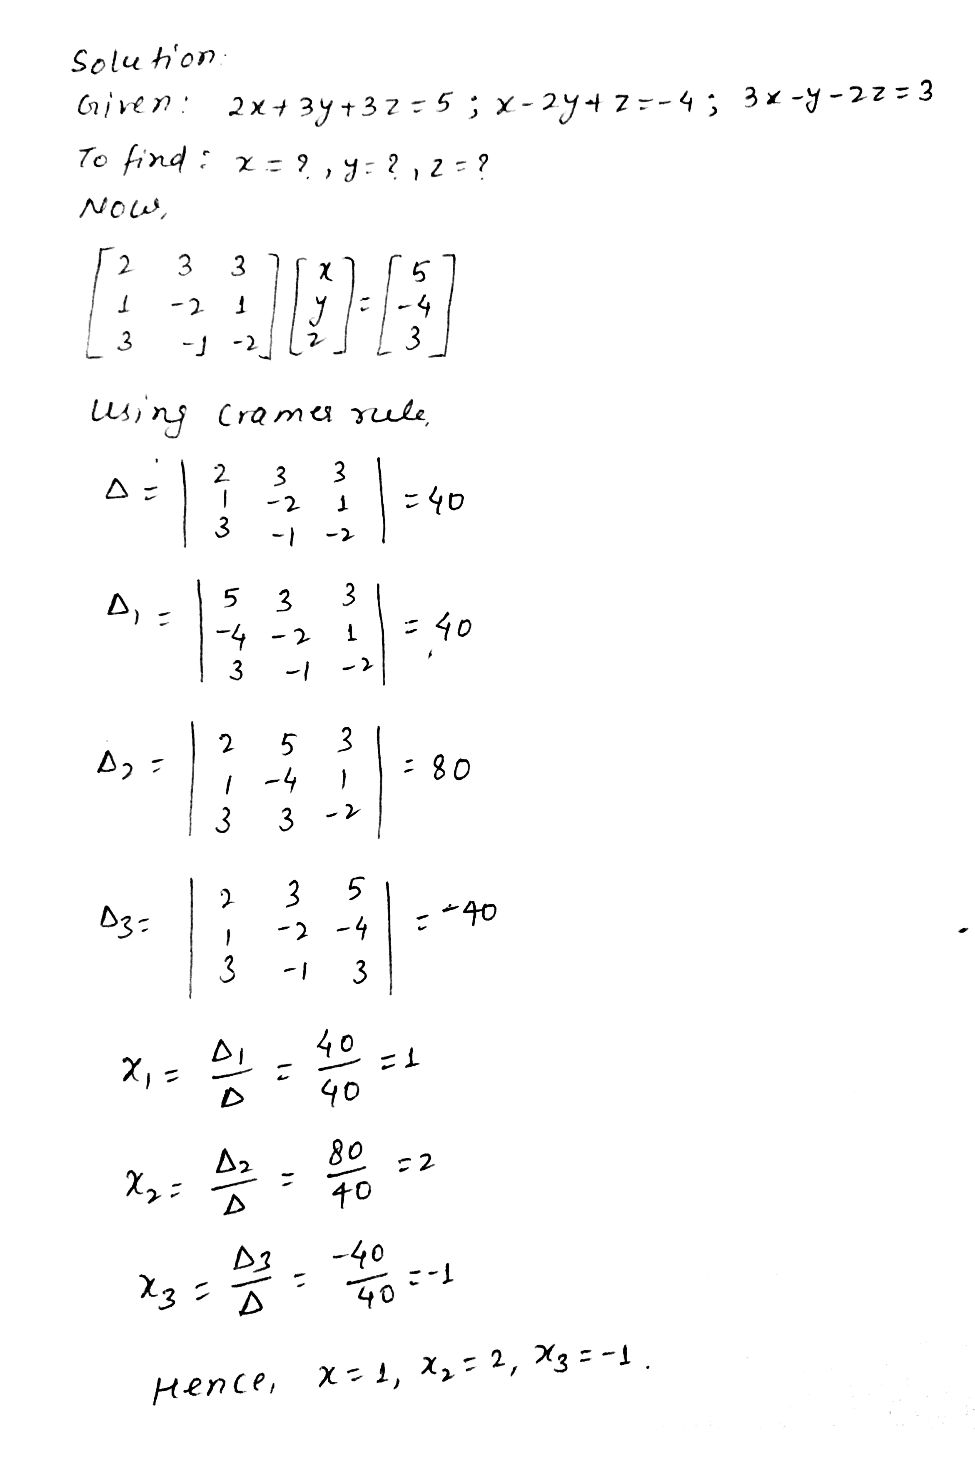 Solution:
Given: 2x+3y+3z=5; x-2y+z=-4; 3x-y-2z=3
To find: x=?, y=?, z=?
Now,
[2 3 3] [x] = [5]
[1 -2 1] [y] [-4]
[3 -1 -2] [z] [3]
Using cramer rule,
Δ = | 2 3 3 | = 40
| 1 -2 1 |
| 3 -1 -2 |
Δ1 = | 5 3 3 | = 40
| -4 -2 1 |
| 3 -1 -2 |
Δ2 = | 2 5 3 | = 80
| 1 -4 1 |
| 3 3 -2 |
Δ3 = | 2 3 5 | = -40
| 1 -2 -4 |
| 3 -1 3 |
x1 = Δ1/Δ = 40/40 = 1
x2 = Δ2/Δ = 80/40 = 2
x3 = Δ3/Δ = -40/40 = -1
Hence, x=1, x2=2, x3=-1.